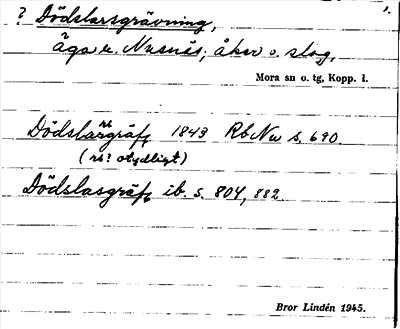 ? Dödslarsgrävning, 1.
äga u. Nusnäs; åker o. slog,
Mora sn o. tg, Kopp. l.
Dödslarsgräfn 1843 Rb Nu s. 690.
(rs? otydligt)
Dödslasgräfn ib. s. 804, 882.
Bror Lindén 1945.